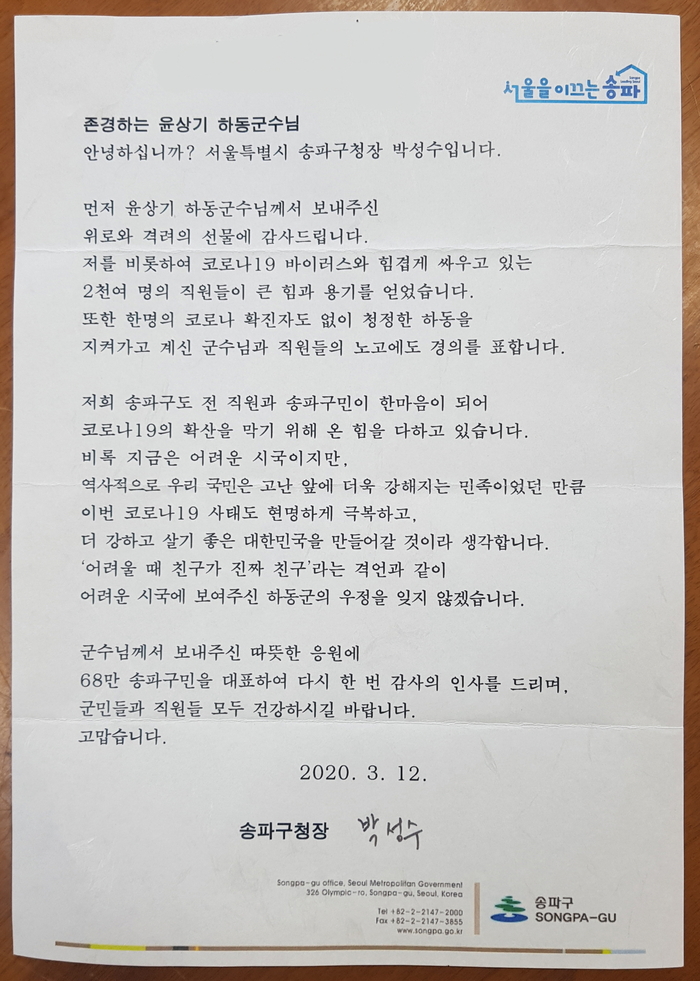 서울을 이끄는 송파
존경하는 윤상기 하동군수님
안녕하십니까? 서울특별시 송파구청장 박성수입니다.
먼저 윤상기 하동군수님께서 보내주신
위로와 격려의 선물에 감사드립니다.
저를 비롯하여 코로나19 바이러스와 힘겹게 싸우고 있는
2천여 명의 직원들이 큰 힘과 용기를 얻었습니다.
또한 한명의 코로나 확진자도 없이 청정한 하동을
지켜가고 계신 군수님과 직원들의 노고에도 경의를 표합니다.
저희 송파구도 전 직원과 송파구민이 한마음이 되어
코로나19의 확산을 막기 위해 온 힘을 다하고 있습니다.
비록 지금은 어려운 시국이지만,
역사적으로 우리 국민은 고난 앞에 더욱 강해지는 민족이었던 만큼
이번 코로나19 사태도 현명하게 극복하고,
더 강하고 살기 좋은 대한민국을 만들어갈 것이라 생각합니다.
‘어려울 때 친구가 진짜 친구’라는 격언과 같이
어려운 시국에 보여주신 하동군의 우정을 잊지 않겠습니다.
군수님께서 보내주신 따뜻한 응원에
68만 송파구민을 대표하여 다시 한 번 감사의 인사를 드리며,
군민들과 직원들 모두 건강하시길 바랍니다.
고맙습니다.
2020. 3. 12.
송파구청장 박성수
Songpa-gu office, Seoul Metropolitan Government
326 Olympic-ro, Songpa-gu, Seoul, Korea
Tel +82-2-2147-2000
Fax +82-2-2147-3855
www.songpa.go.kr
송파구
SONGPA-GU